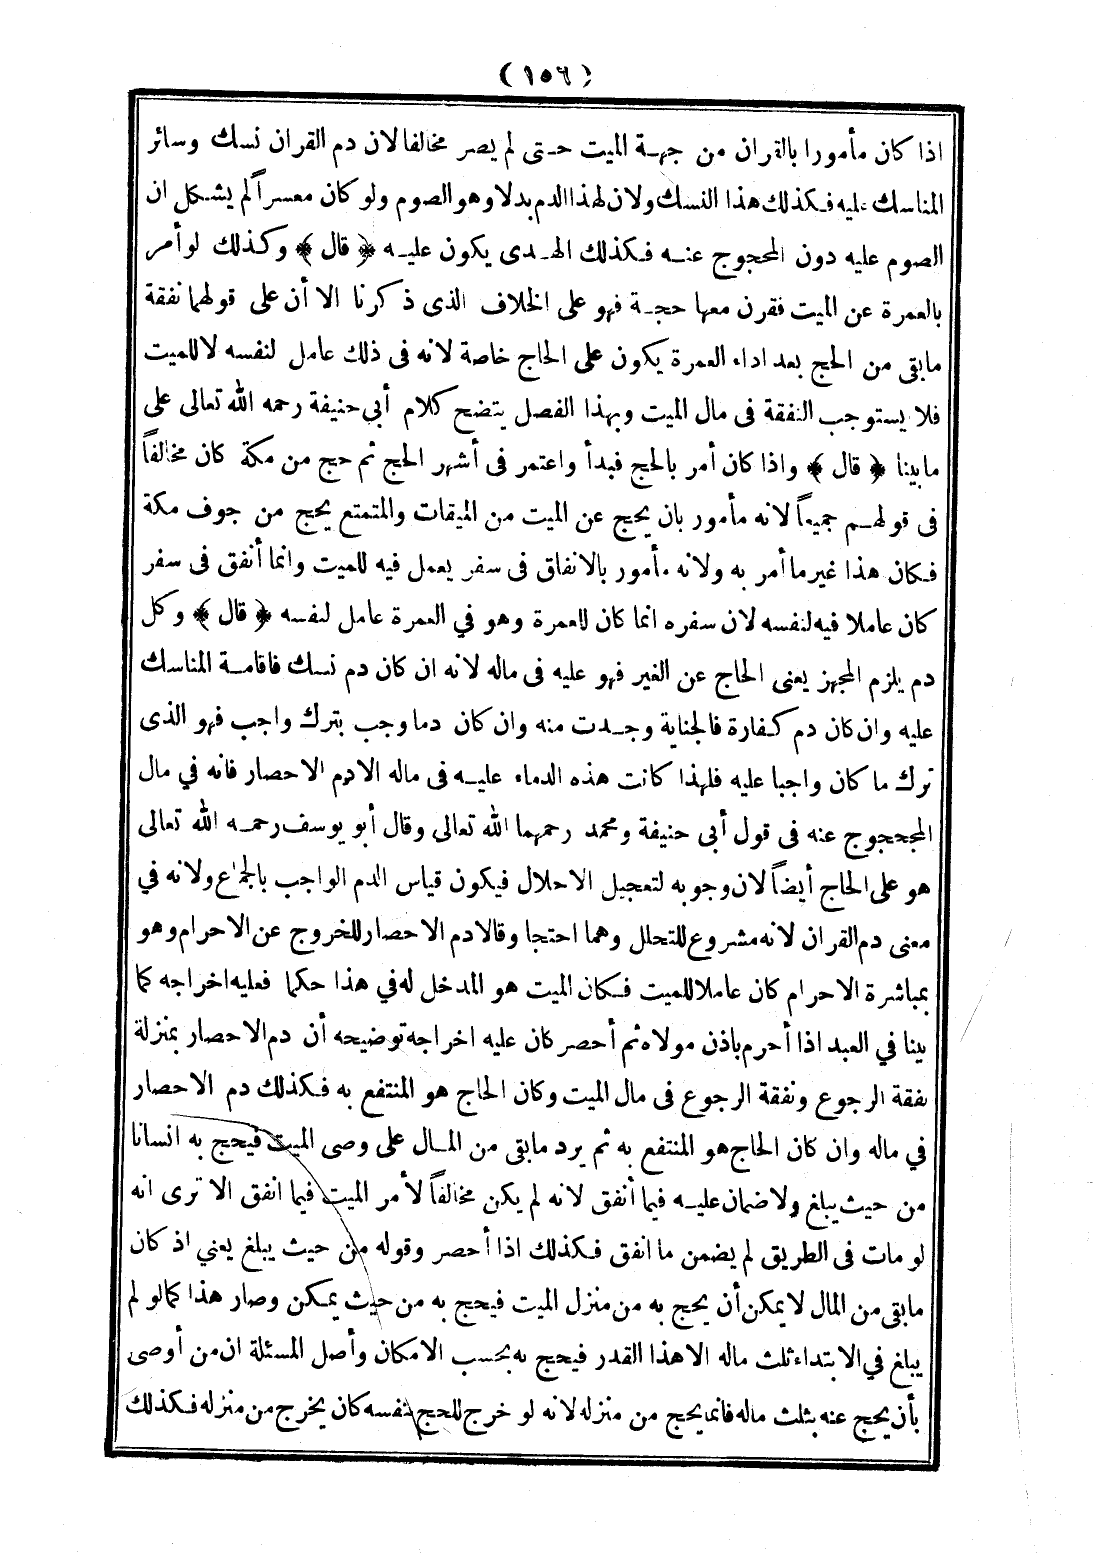 (١٥٦)
اذا كان مأمورا بالقران من جهة الميت حتى لم يصر مخالفا لان دم القران نسك وسائر
المناسك عليه فكذلك هذا النسك ولان لهذا الدم بدلا وهو الصوم ولو كان معسراً لم يشكل ان
الصوم عليه دون المحجوج عنه فكذلك الهدى يكون عليه ﴿ قال ﴾ وكذلك لو أمر
بالعمرة عن الميت فقرن معها حجة فهو على الخلاف الذى ذكرنا الا أن على قولهما نفقة
مابقى من الحج بعد اداء العمرة يكون على الحاج خاصة لانه فى ذلك عامل لنفسه لا للميت
فلا يستوجب النفقة فى مال الميت وبهذا الفصل يتضح كلام أبى حنيفة رحمه الله تعالى على
مابينا ﴿ قال ﴾ واذا كان أمر بالحج فبدأ واعتمر فى أشهر الحج ثم حج من مكة كان مخالفاً
فى قولهم جميعاً لانه مأمور بان يحج عن الميت من الميقات والمتمتع يحج من جوف مكة
فكان هذا غير ما أمر به ولانه مأمور بالانفاق فى سفر يعمل فيه للميت وانما أنفق فى سفر
كان عاملا فيه لنفسه لان سفره انما كان للعمرة وهو في العمرة عامل لنفسه ﴿ قال ﴾ وكل
دم يلزم المجهز يعنى الحاج عن الغير فهو عليه فى ماله لانه ان كان دم نسك فاقامة المناسك
عليه وان كان دم كفارة فالجناية وجدت منه وان كان دما وجب بترك واجب فهو الذى
ترك ما كان واجبا عليه فلهذا كانت هذه الدماء عليه فى ماله الا دم الاحصار فانه في مال
المحجوج عنه فى قول أبى حنيفة ومحمد رحمهما الله تعالى وقال أبو يوسف رحمه الله تعالى
هو على الحاج أيضاً لان وجوبه لتعجيل الاحلال فيكون قياس الدم الواجب بالجماع ولانه في
معنى دم القران لانه مشروع للتحلل وهما احتجا وقالا دم الاحصار للخروج عن الاحرام وهو
بمباشرة الاحرام كان عاملا للميت فكان الميت هو المدخل له في هذا حكما فعليه اخراجه كما
بينا في العبد اذا أحرم باذن مولاه ثم أحصر كان عليه اخراجه توضيحه أن دم الاحصار بمنزلة
نفقة الرجوع ونفقة الرجوع فى مال الميت وكان الحاج هو المنتفع به فكذلك دم الاحصار
في ماله وان كان الحاج هو المنتفع به ثم يرد مابقى من المال على وصى الميت فيحج به انسانا
من حيث يبلغ ولا ضمان عليه فيما أنفق لانه لم يكن مخالفاً لأمر الميت فيما انفق الا ترى انه
لو مات فى الطريق لم يضمن ما انفق فكذلك اذا أحصر وقوله من حيث يبلغ يعني اذ كان
مابقى من المال لا يمكن أن يحج به من منزل الميت فيحج به من حيث يمكن وصار هذا كما لو لم
يبلغ في الابتداء ثلث ماله الا هذا القدر فيحج به بحسب الامكان وأصل المسئلة ان من أوصى
بأن يحج عنه بثلث ماله فانما يحج من منزله لانه لو خرج للحج بنفسه كان يخرج من منزله فكذلك